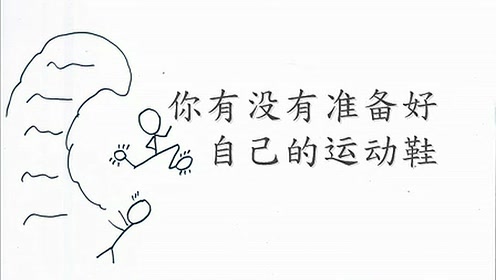 你有没有准备好
自己的运动鞋